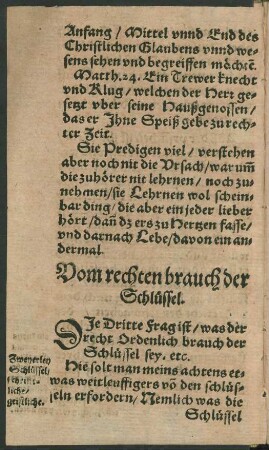 Anfang / Mittel vnnd End des
Christlichen Glaubens vnnd we-
sens sehen vnd begreiffen möchte.
Matth. 24. Ein Trewer knecht
vnd Klug / welchen der Herr ge-
setzt vber seine Haußgenossen /
das er Ihne Speiß gebe zu rech-
ter Zeit.
Sie Predigen viel / verstehen
aber noch nit die Vrsach / warum̄
die zuhörer nit lehrnen / noch zu-
nehmen / sie Lehrnen wol schein-
bar ding / die aber ein jeder lieber
hört / dañ dz ers zu Hertzen fasse /
vnd darnach Lebe / davon ein an-
dermal.
Vom rechten brauch der
Schlüssel.
DIe Dritte Frag ist / was der
recht Ordenlich brauch der
Schlüssel sey. etc.
Zweyerley
Schlüssel /
schrifft-
liche /
geistliche.
Hie solt man meins achtens et-
was weitleuffigers võ den schlüs-
seln erfordern / Nemlich was die
Schlüssel